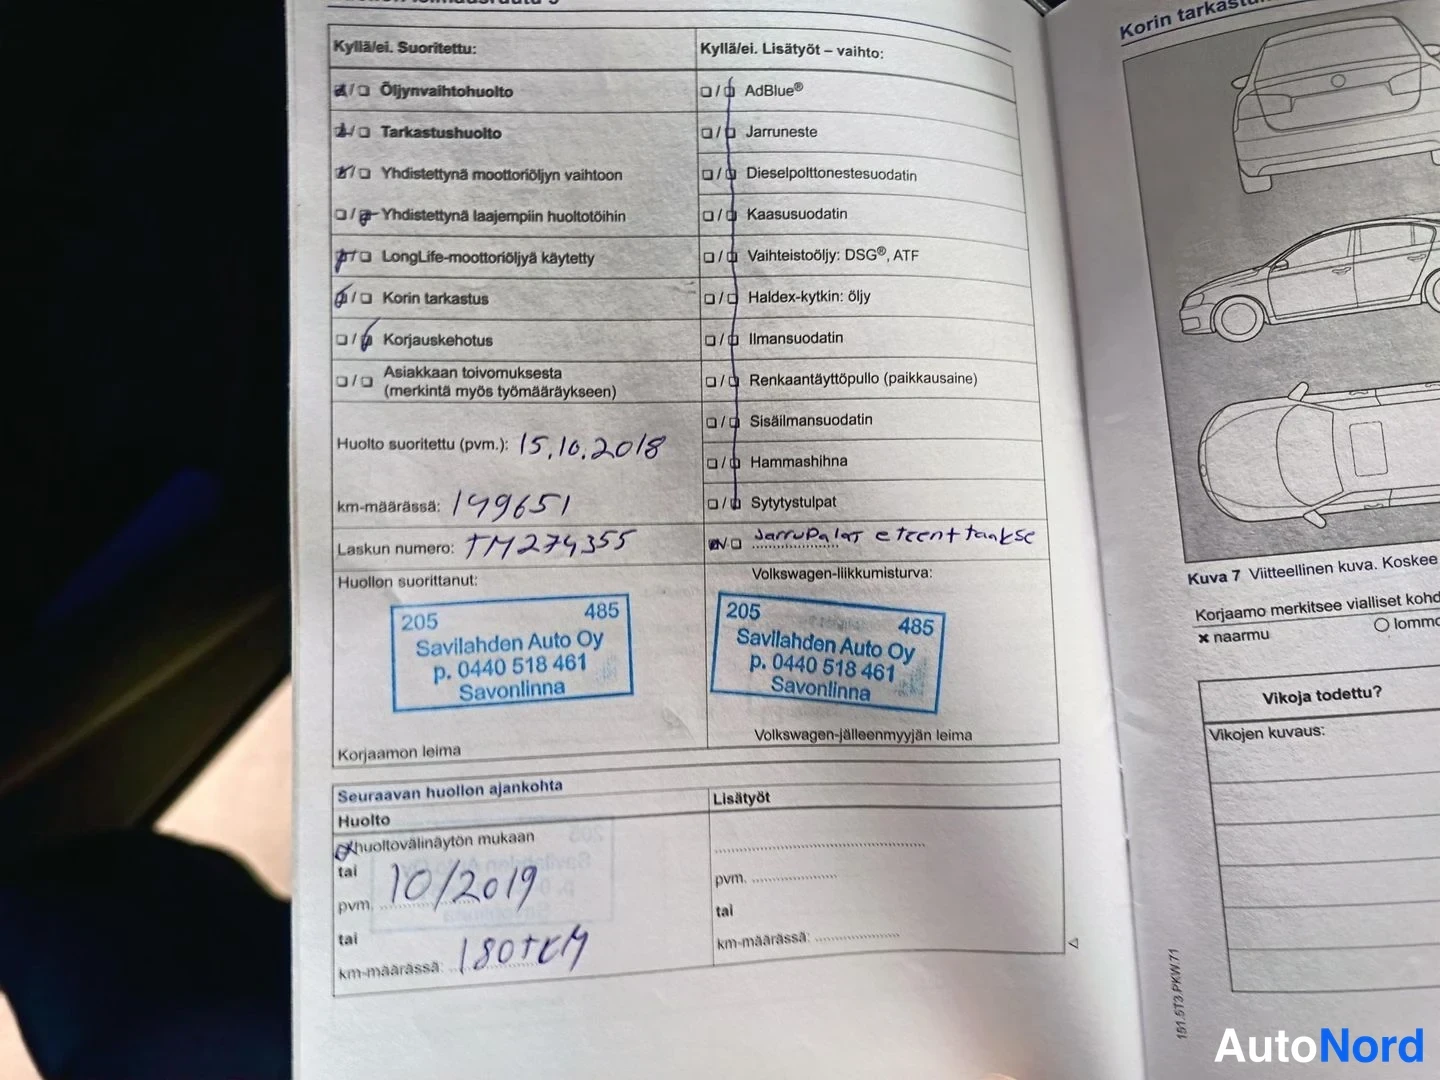 Kyllä/ei. Suoritettu:
☒/☐ Öljynvaihtohuolto
☒/☐ Tarkastushuolto
☒/☐ Yhdistettynä moottoriöljyn vaihtoon
☐/☒ Yhdistettynä laajempiin huoltotöihin
☒/☐ LongLife-moottoriöljyä käytetty
☒/☐ Korin tarkastus
☐/☒ Korjauskehotus
☐/☐ Asiakkaan toivomuksesta
(merkintä myös työmääräykseen)
Huolto suoritettu (pvm.): 15.10.2018
km-määrässä: 149651
Laskun numero: TM274355
Huollon suorittanut:
205 485
Savilahden Auto Oy
p. 0440 518 461
Savonlinna
Korjaamon leima
Kyllä/ei. Lisätyöt – vaihto:
☐/☒ AdBlue®
☐/☒ Jarruneste
☐/☒ Dieselpolttonestesuodatin
☐/☒ Kaasusuodatin
☐/☒ Vaihteistoöljy: DSG®, ATF
☐/☒ Haldex-kytkin: öljy
☐/☒ Ilmansuodatin
☐/☒ Renkaantäyttöpullo (paikkausaine)
☐/☒ Sisäilmansuodatin
☐/☒ Hammashihna
☐/☒ Sytytystulpat
☒/☐ Jarrupalat eteen+taakse
Volkswagen-liikkumisturva:
205 485
Savilahden Auto Oy
p. 0440 518 461
Savonlinna
Volkswagen-jälleenmyyjän leima
Seuraavan huollon ajankohta
Huolto
☒ huoltovälinäytön mukaan
tai
pvm. 10/2019
tai
km-määrässä: 180TKM
Lisätyöt
pvm.
tai
km-määrässä:
Korin
Kuva 7 Viitteellinen kuva. Koskee
Korjaamo merkitsee vialliset
× naarmu ○
Vikoja todettu?
Vikojen kuvaus:
151.5T3.PKW.71
AutoNord